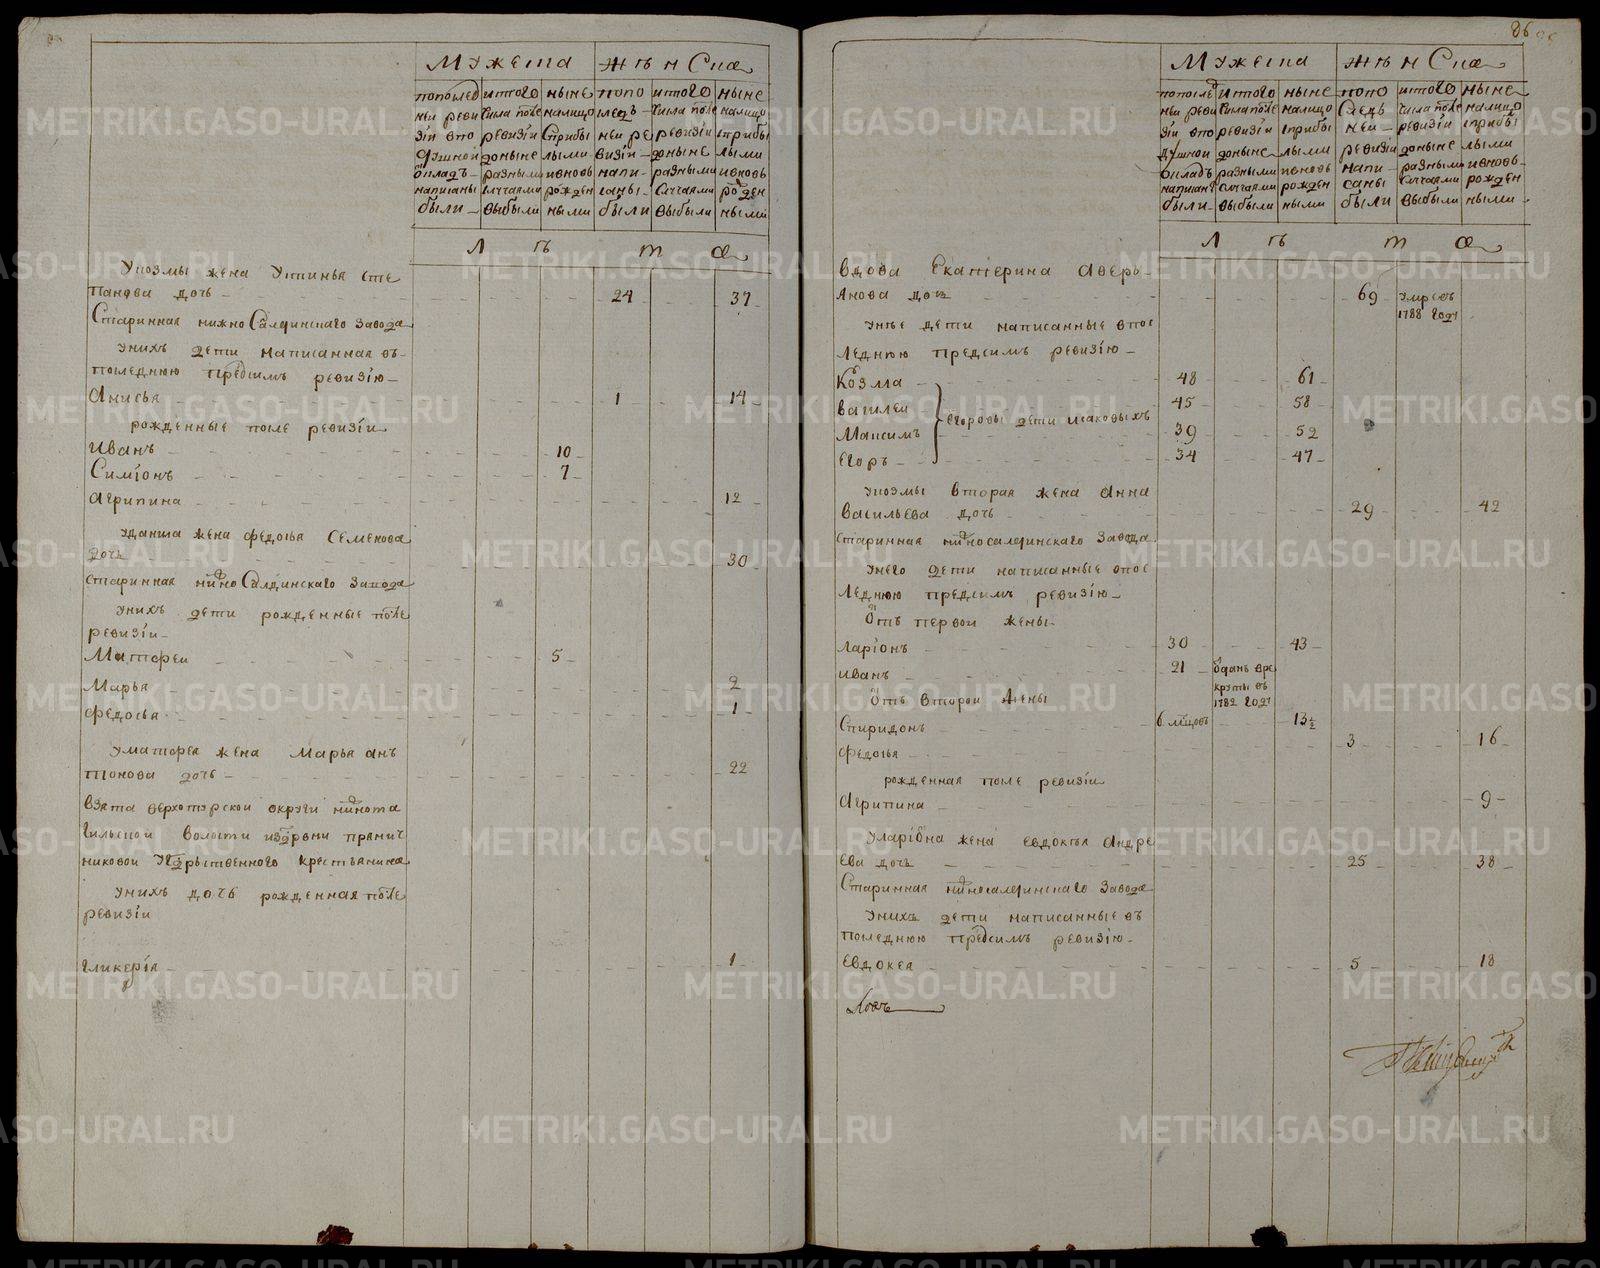 Мужеска
Женска
попослед
ней реви
зіи впо
душной
окладъ
написаны
были
изтого
числа после
ревизіи
доныне
разными
случаями
выбыли
ныне
налицо
сприбы
лыми
ивновь
рожден
ными
попо
следъ
ней ре
визіи
напи-
саны
были
изтого
числа после
ревизіи
доныне
разными
случаями
выбыли
ныне
налицо
сприбы
лыми
ивновь
рожден
ными
Л ѣ т а
Укозмы жена Устинья Сте
панова дочь 24 37
Старинная нижно Салдинскаго завода
унихъ дети написанная въ
последнюю предсимъ ревизію
Анисья 1 14
рожденные после ревизіи
Иванъ 10
Симіонъ 7
Агрипина 12
уданила жена федосья Семенова
дочь 30
старинная нижно Салдинскаго завода
унихъ дети рожденные после
ревизіи
Матфеи 5
Марья 2
федосья 1
уматфея жена Марья ан
тонова дочь 22
взята верхотурской округи нижнота
гильской волости издеревни пранич
никовой Угосударственного крестьянина
унихъ дочь рожденная после
ревизіи
гликерія 1
86
Мужеска
Женска
попослед
ней реви
зіи впо
душной
окладъ
написаны
были
изтого
числа после
ревизіи
доныне
разными
случаями
выбыли
ныне
налицо
сприбы
лыми
ивновь
рожден
ными
попо
следъ
ней
ревизіи
напи-
саны
были
изтого
числа после
ревизіи
доныне
разными
случаями
выбыли
ныне
налицо
сприбы
лыми
ивновь
рожден
ными
Л ѣ т а
вдова Екатерина Аверь-
янова дочь 69 умре въ
1788 году
унее дети написанные впос
леднюю предсимъ ревизію
Козма 48 61
василеи 45 58
егоровы дети исаковыхъ
Максимъ 39 52
Егоръ 34 47
укозмы вторая жена Анна
васильева дочь 29 42
старинная нижносалдинскаго завода
унего дети написанные впос
леднюю предсимъ ревизію
отъ первой жены
ларіонъ 30 43
иванъ 21 отданъ вре
круты въ
1782 году
отъ второй жены
Спиридонъ 6 мѣсцовъ 13½
федосья 3 16
рожденная после ревизіи
Агрипина 9
уларіона жена евдокея Андре
ева дочь 25 38
Старинная нижносалдинскаго завода
унихъ дети написанные въ
последнюю предсимъ ревизію
Евдокея 5 18
METRIKI.GASO-URAL.RU